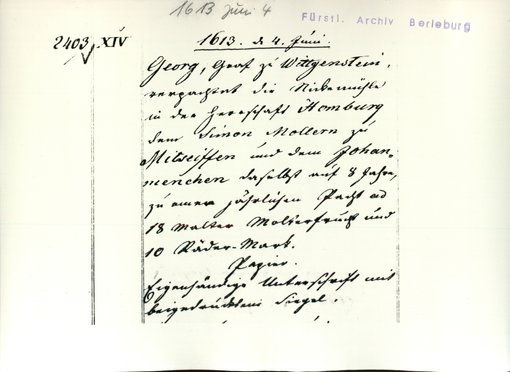 1613 Juni 4
Fürstl. Archiv Berleburg
2403 XIV
1613. d. 4. Juni.
Georg, Graf zu Wittgenstein,
verpachtet die Nickemühle
in der Herrschaft Homburg
dem Simon Moltern zu
Milseiffen und dem Johan-
menchen daselbst auf 8 Jahre,
zu einer jährlichen Pacht ad
18 Malter Molterfrucht und
10 Räder-Mark.
Papier.
Eigenhändige Unterschrift mit
beigedrücktem Siegel.